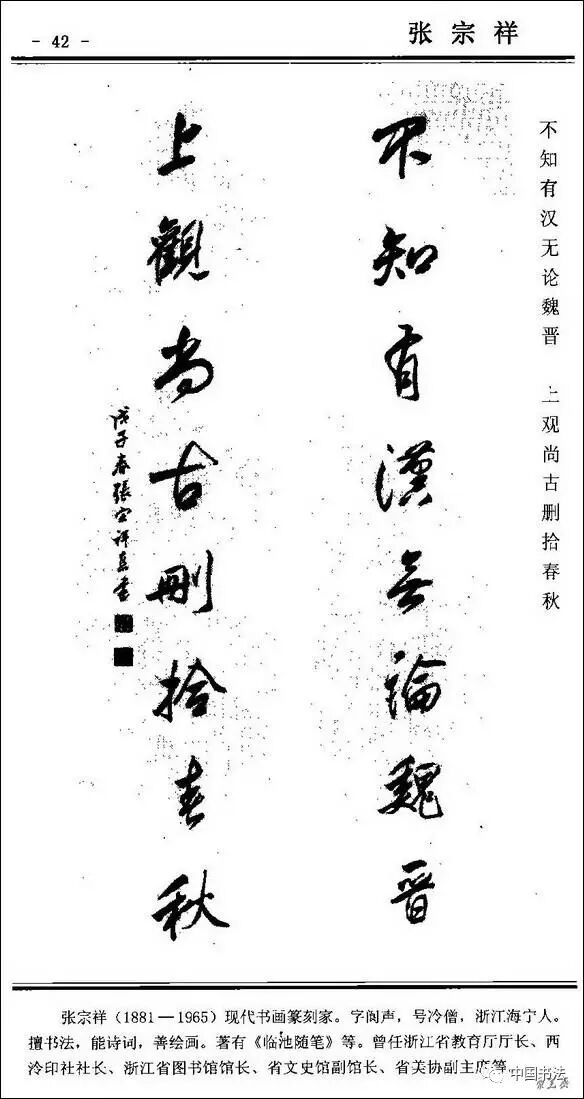 - 42 -
张宗祥
不知有汉无论魏晋 上观尚古删拾春秋
不知有漢無論魏晋
上觀尚古刪拾春秋
戊子春張宗祥
张宗祥(1881—1965)现代书画篆刻家。字阆声，号冷僧，浙江海宁人。
擅书法，能诗词，善绘画。著有《临池随笔》等。曾任浙江省教育厅厅长、西
泠印社社长、浙江省图书馆馆长、省文史馆副馆长、省美协副主席等。
中国书法